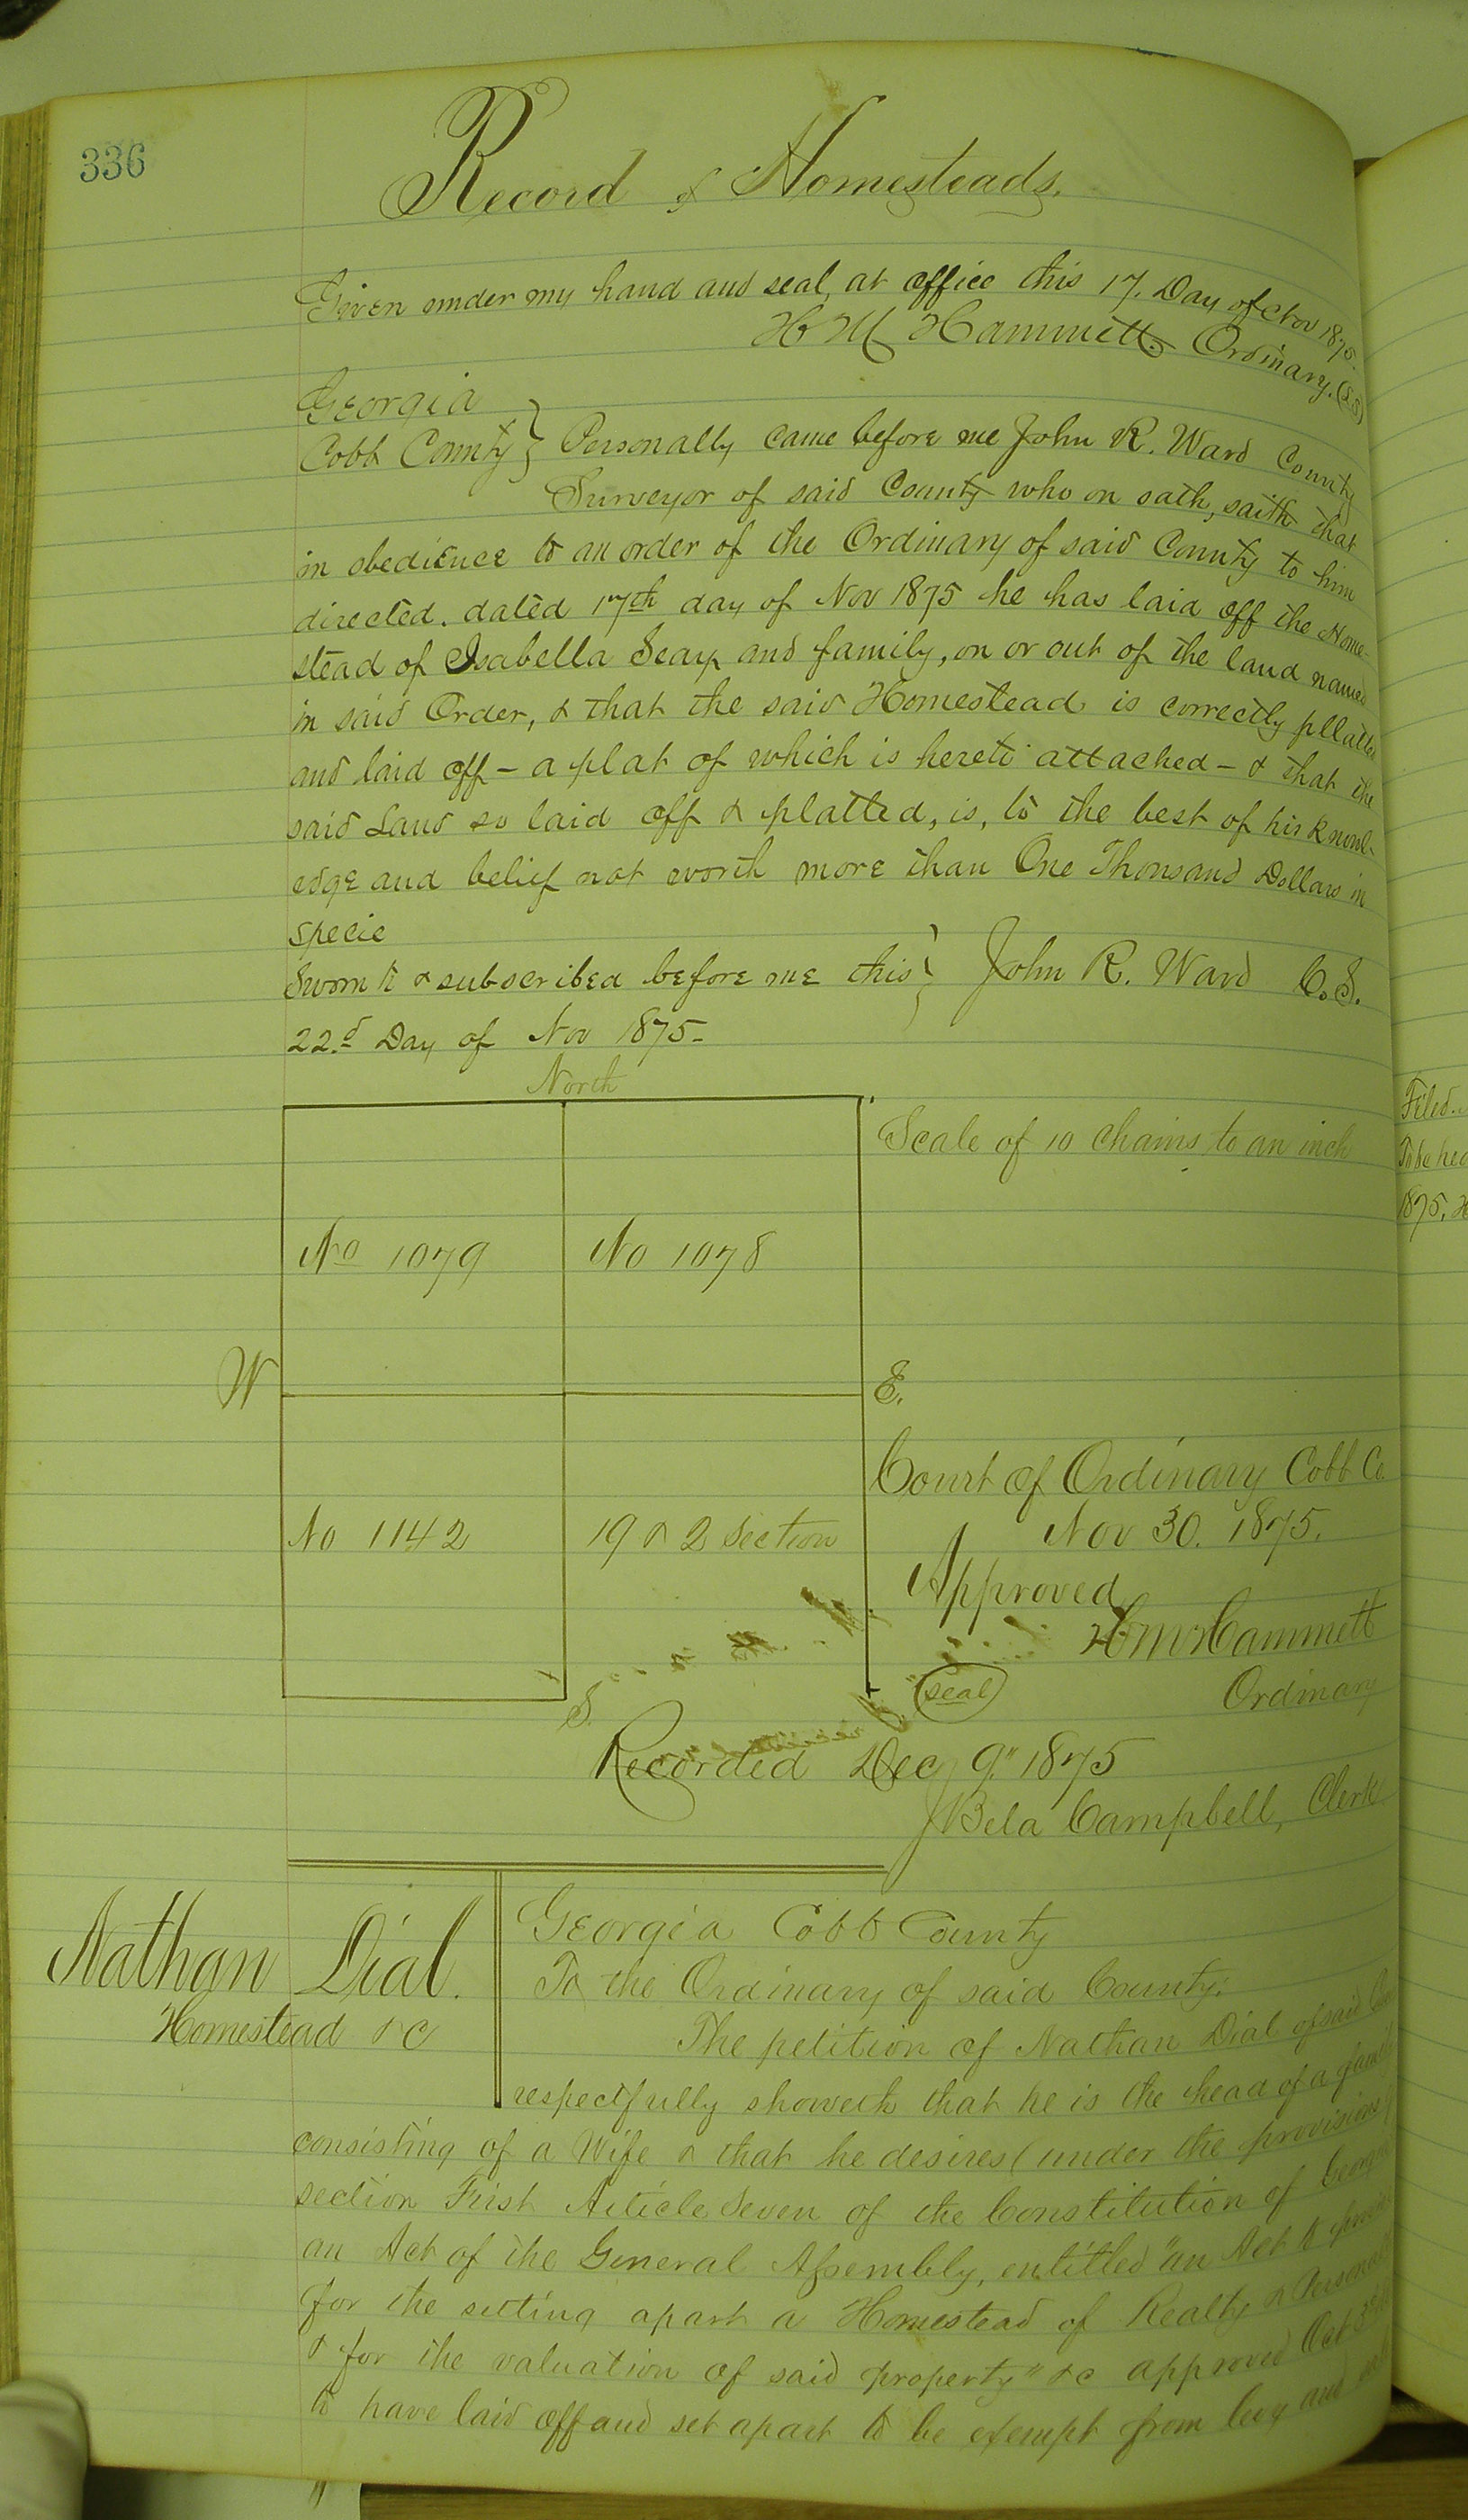 336
Record of Homesteads.
Given under my hand and seal, at office this 17. Day of Nov 1875.
H M Hammett Ordinary. (L.S)
Georgia
Cobb County } Personally came before me John R. Ward County
Surveyor of said County who on oath, saith that
in obedience to an order of the Ordinary of said County to him
directed. dated 17th day of Nov 1875 he has laid off the Home-
stead of Isabella Seay and family, on or out of the land named
in said Order, & that the said Homestead is correctly pllatted
and laid off – a plat of which is hereto attached – & that the
said Land so laid off & platted, is, to the best of his knowl-
edge and belief not worth more than One Thousand Dollars in
Specie
Sworn to & subscribed before me this } John R. Ward C.S.
22.d Day of Nov 1875-
North
Scale of 10 Chains to an inch
No 1079 No 1078
W E.
Court of Ordinary Cobb Co.
No 1142 19 & 2 Section Nov 30. 1875.
Approved
H M Hammett
(seal) Ordinary
S.
Recorded Dec 9" 1875
J Bela Campbell, Clerk
Nathan Dial.
Homestead &C
Georgia Cobb County
To the Ordinary of said County:
The petition of Nathan Dial of said
respectfully showeth that he is the head of a family
consisting of a Wife & that he desires (under the provisions
section First Article Seven of the Constitution of Georgia
an Act of the General Assembly, entitled "an Act to
for the setting apart a Homestead of Realty &
& for the valuation of said property" &c approved Oct 3d
to have laid off and set apart to be exempt from levy and
Filed.
To be
1875.